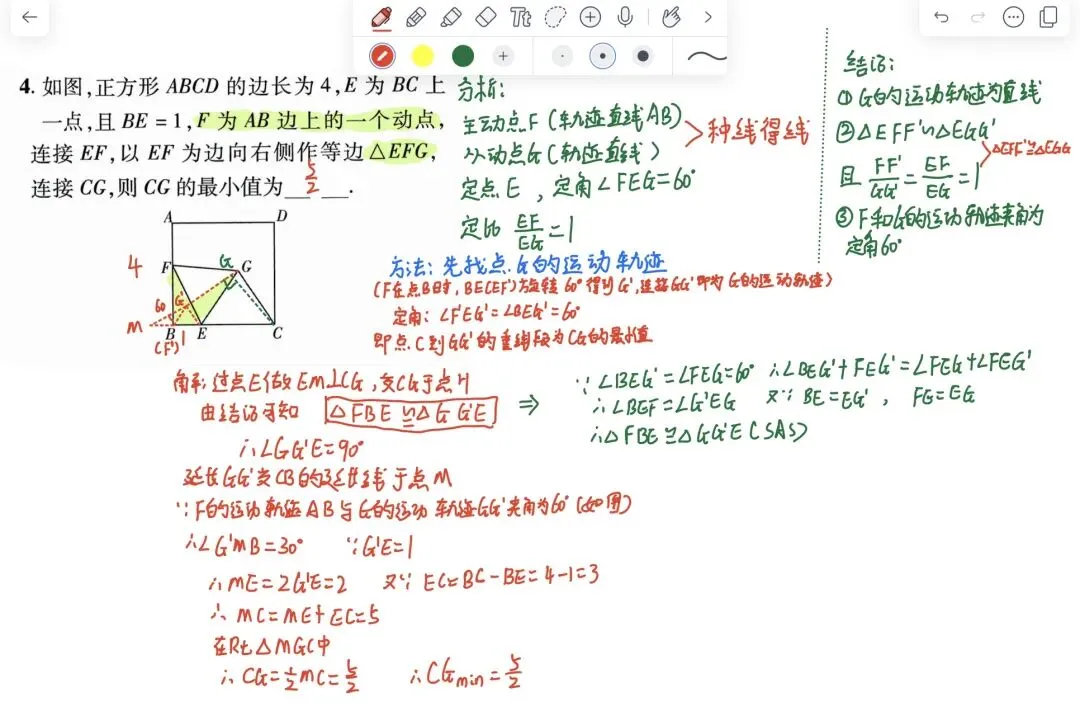 4. 如图,正方形 ABCD 的边长为 4,E 为 BC 上
一点,且 BE=1,F 为 AB 边上的一个动点,
连接 EF,以 EF 为边向右侧作等边△EFG,
连接 CG,则 CG 的最小值为 5/2 .
A D
4 F G G
60 G'
M B E C
(F') 1
分析:
主动点F(轨迹直线AB)
从动点G(轨迹直线)
>种线得线
定点E , 定角∠FEG=60°
定比 EF/EG=1
方法: 先找点G的运动轨迹
(F在点B时, BE(EF')旋转60°得到G', 连接GG'即为G的运动轨迹)
定角: ∠F'EG'=∠BEG'=60°
即点C到GG'的垂线段为CG的最小值
结论:
①G的运动轨迹为直线
②△EFF'∽△EGG'
且 FF'/GG'=EF/EG=1
△EFF'≌△EGG
③F和G的运动轨迹夹角为
定角60°
解: 过点E做EM⊥CG, 交CG于点H
由结论可知 △FBE≌△GG'E ⇒
∴∠GG'E=90°
延长GG'交CB的延长线于点M
∵F的运动轨迹AB与G的运动轨迹GG'夹角为60°(如图)
∴∠G'MB=30° ∵G'E=1
∴ME=2G'E=2 又∵EC=BC-BE=4-1=3
∴MC=ME+EC=5
在Rt△MGC中
∴CG=1/2MC=5/2 ∴CGmin=5/2
∵∠BEG'=∠FEG=60° ∴∠BEG'+FEG'=∠FEG+∠FEG'
∴∠BEF=∠G'EG 又∵BE=EG', FG=EG
∴△FBE≌△GG'E(SAS)